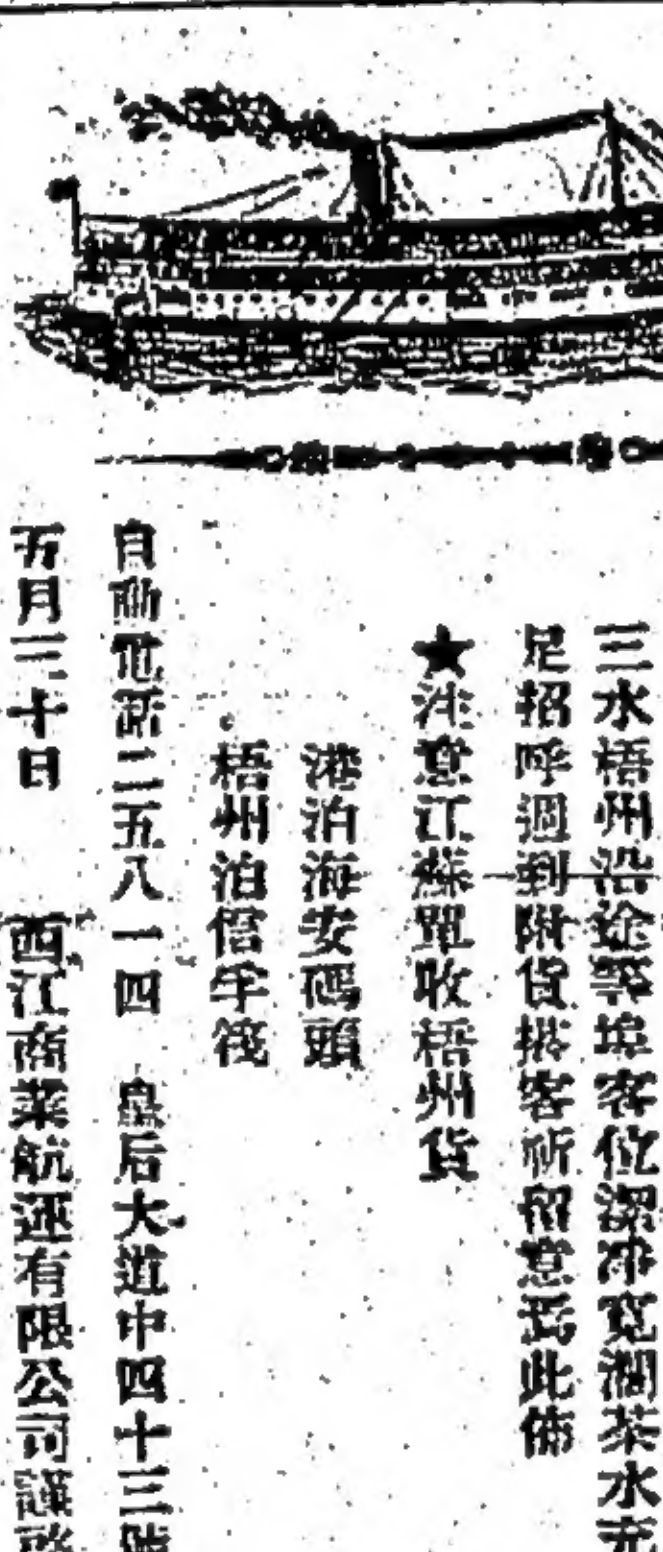 三水梧州沿途等埠客位潔净寬濶茶水充
足招呼週到附貨搭客祈留意焉此佈
★注意江蘇單收梧州貨
港泊海安碼頭
梧州泊信孚筏
自動電話二五八一四 皇后大道中四十三號
五月三十日 西江商業航運有限公司謹啟